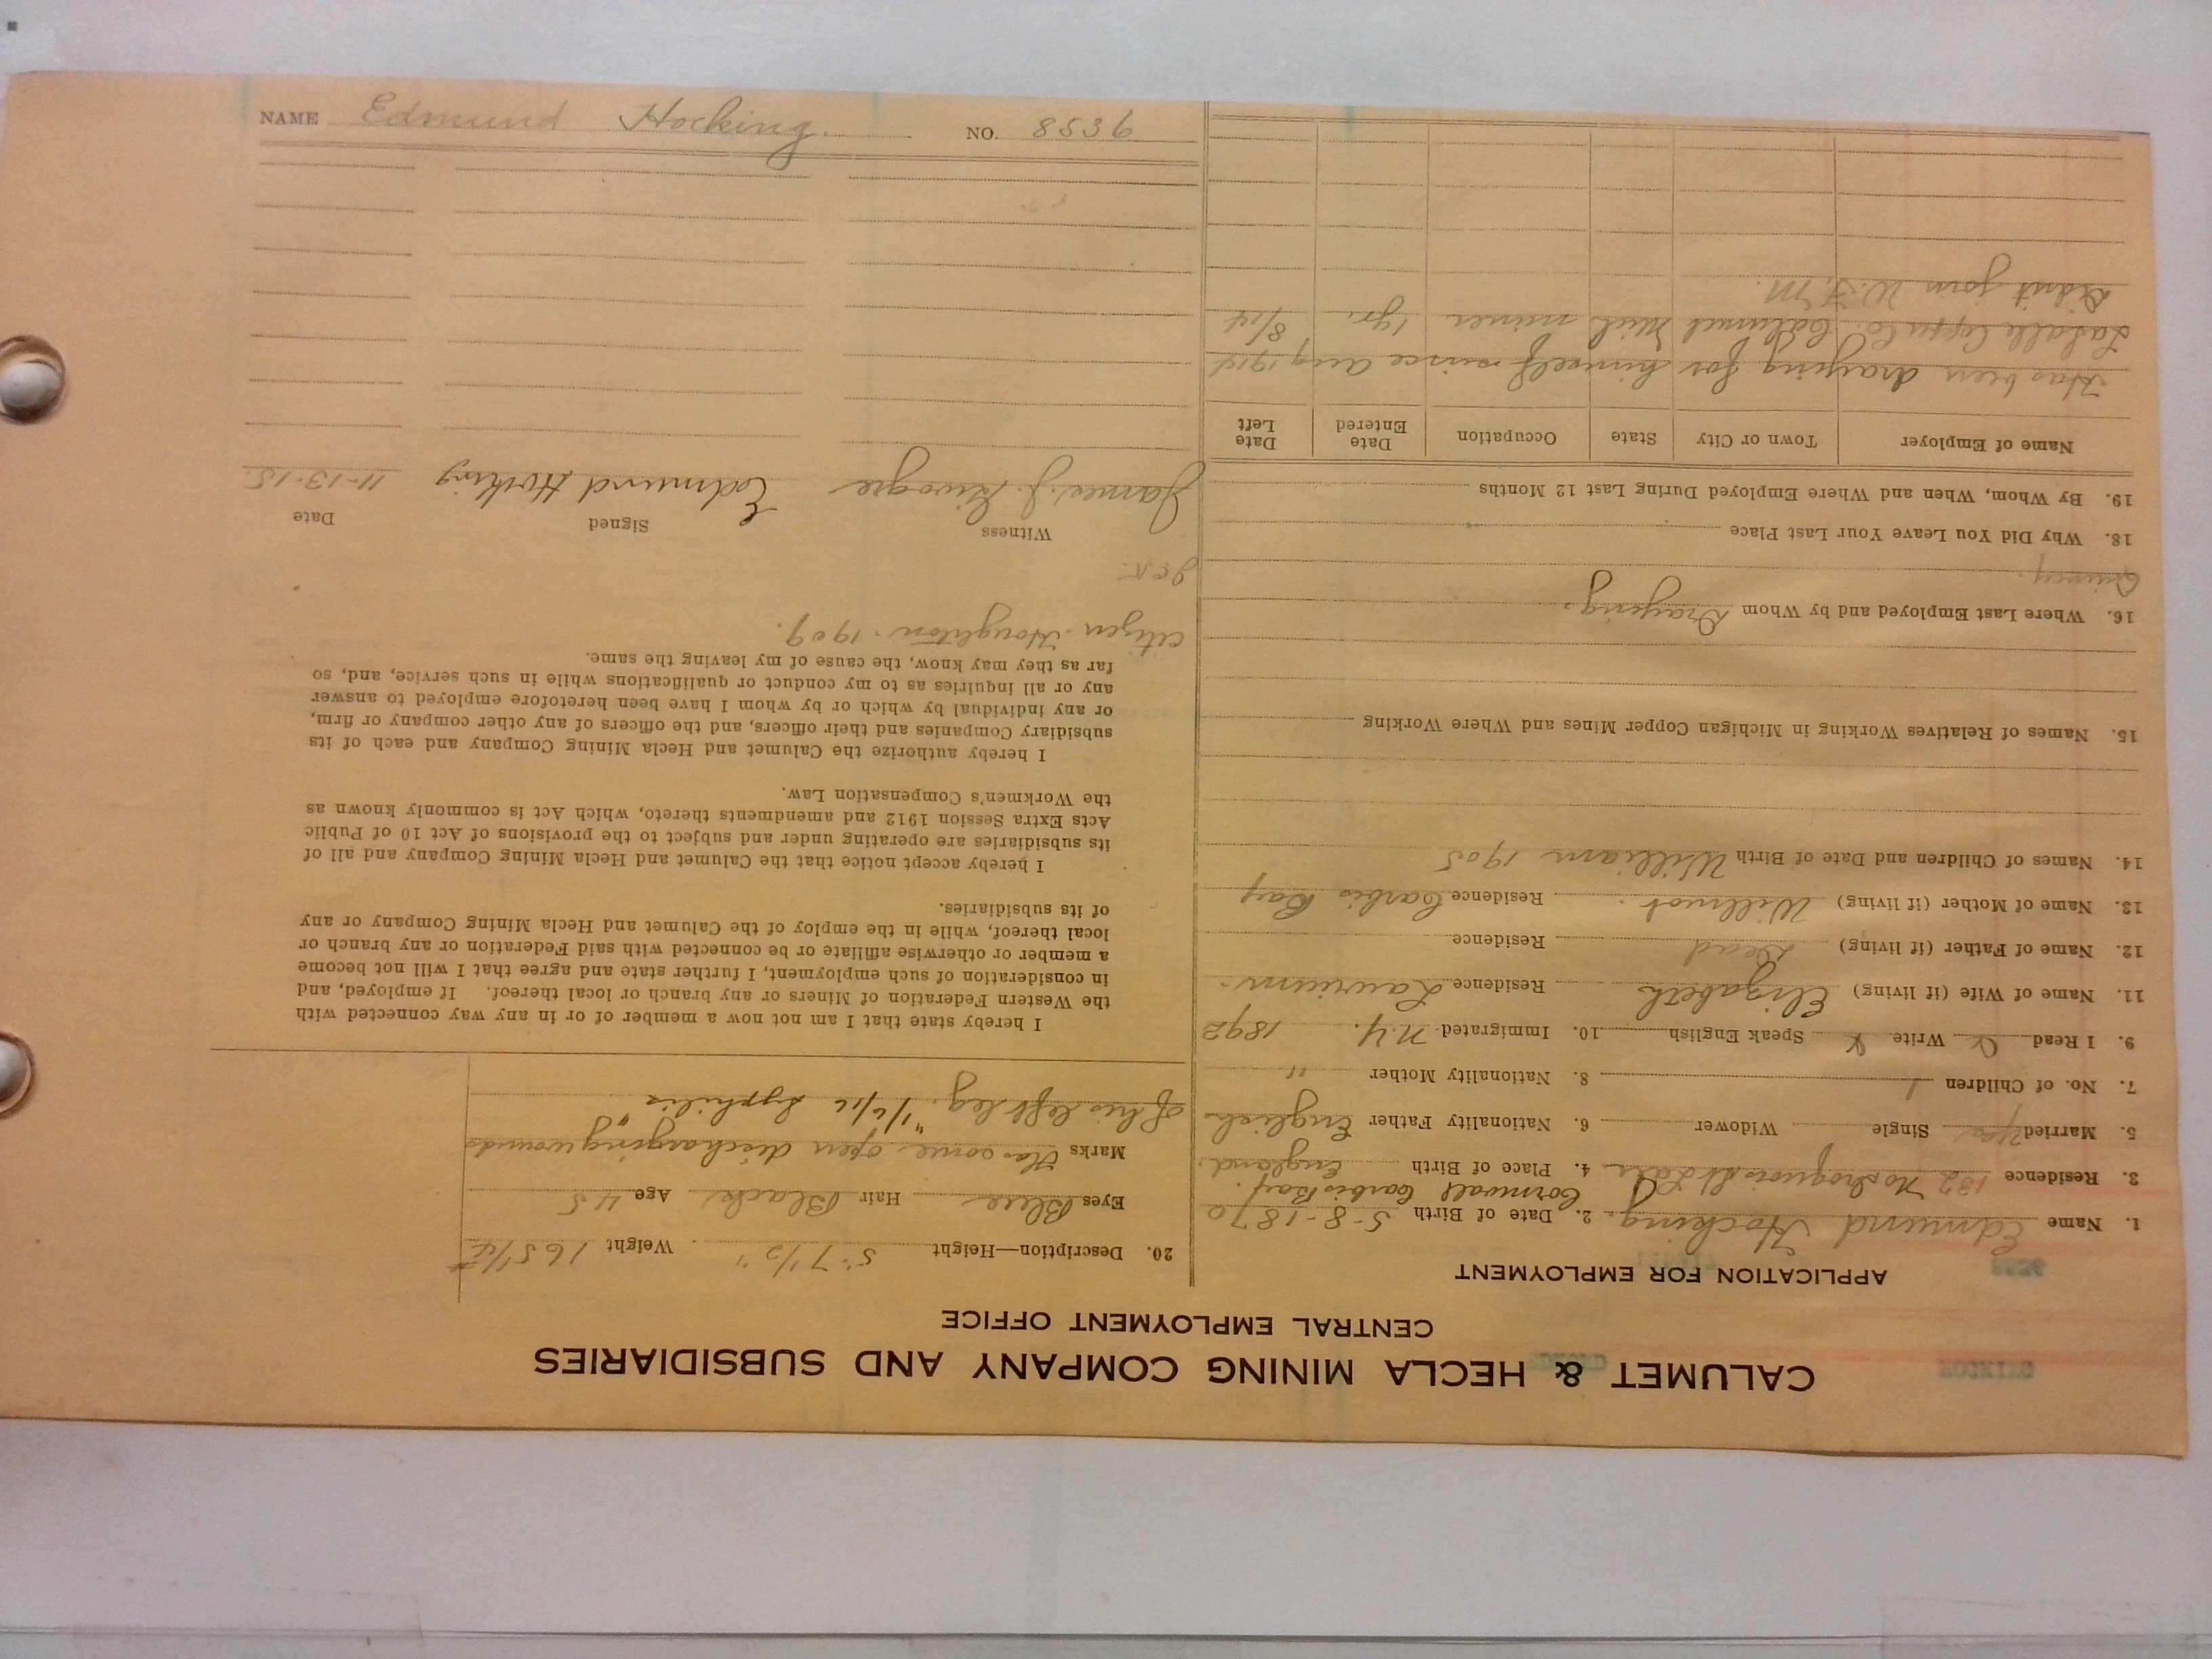 CALUMET & HECLA MINING COMPANY AND SUBSIDIARIES
CENTRAL EMPLOYMENT OFFICE
APPLICATION FOR EMPLOYMENT
1. Name Edmund Hocking. 2. Date of Birth 5-8-1870
Cornwall Carbis Bay.
3. Residence 132 No Iroquois St 4. Place of Birth England.
5. Married Yes Single Widower 6. Nationality Father English
7. No. of Children 1 8. Nationality Mother "
9. I Read Write Speak English 10. Immigrated N.Y. 1892
11. Name of Wife (if living) Elizabeth Residence Laurium.
12. Name of Father (if living) Dead Residence
13. Name of Mother (if living) Willmot. Residence Carbis Bay
14. Names of Children and Date of Birth William 1905
15. Names of Relatives Working in Michigan Copper Mines and Where Working
16. Where Last Employed and by Whom Draying.
Quincy.
18. Why Did You Leave Your Last Place
19. By Whom, When and Where Employed During Last 12 Months
Name of Employer Town or City State Occupation Date Entered Date Left
Has been draying for himself since Aug 1914
Lasalle Copper Co. Calumet Mich miner. 1 yr. 8/14
Didn't join W.F.M.
20. Description—Height 5' 7 1/2" Weight 165 1/4 #
Eyes Blue Hair Black Age 45
Marks Has some open discharging wounds
of his left leg. 1/6/16 "Syphilis"
I hereby state that I am not now a member of or in any way connected with
the Western Federation of Miners or any branch or local thereof. If employed, and
in consideration of such employment, I further state and agree that I will not become
a member or otherwise affiliate or be connected with said Federation or any branch or
local thereof, while in the employ of the Calumet and Hecla Mining Company or any
of its subsidiaries.
I hereby accept notice that the Calumet and Hecla Mining Company and all of
its subsidiaries are operating under and subject to the provisions of Act 10 of Public
Acts Extra Session 1912 and amendments thereto, which Act is commonly known as
the Workmen's Compensation Law.
I hereby authorize the Calumet and Hecla Mining Company and each of its
subsidiary Companies and their officers, and the officers of any other company or firm,
or any individual by which or by whom I have been heretofore employed to answer
any or all inquiries as to my conduct or qualifications while in such service, and, so
far as they may know, the cause of my leaving the same.
Citizen. Houghton. 1909.
Witness Signed Date
James J. Edmund Hocking 11-13-15.
NAME Edmund Hocking. NO. 8536